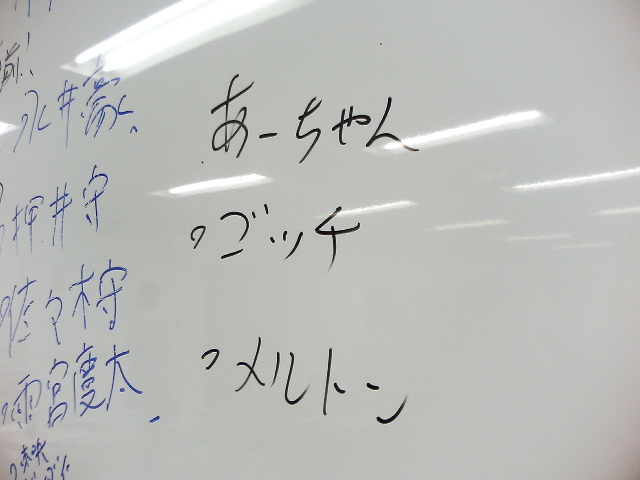 永井豪、
押井守
佐々木守
雨宮慶太
あーちゃん
ゴッチ
メルトン